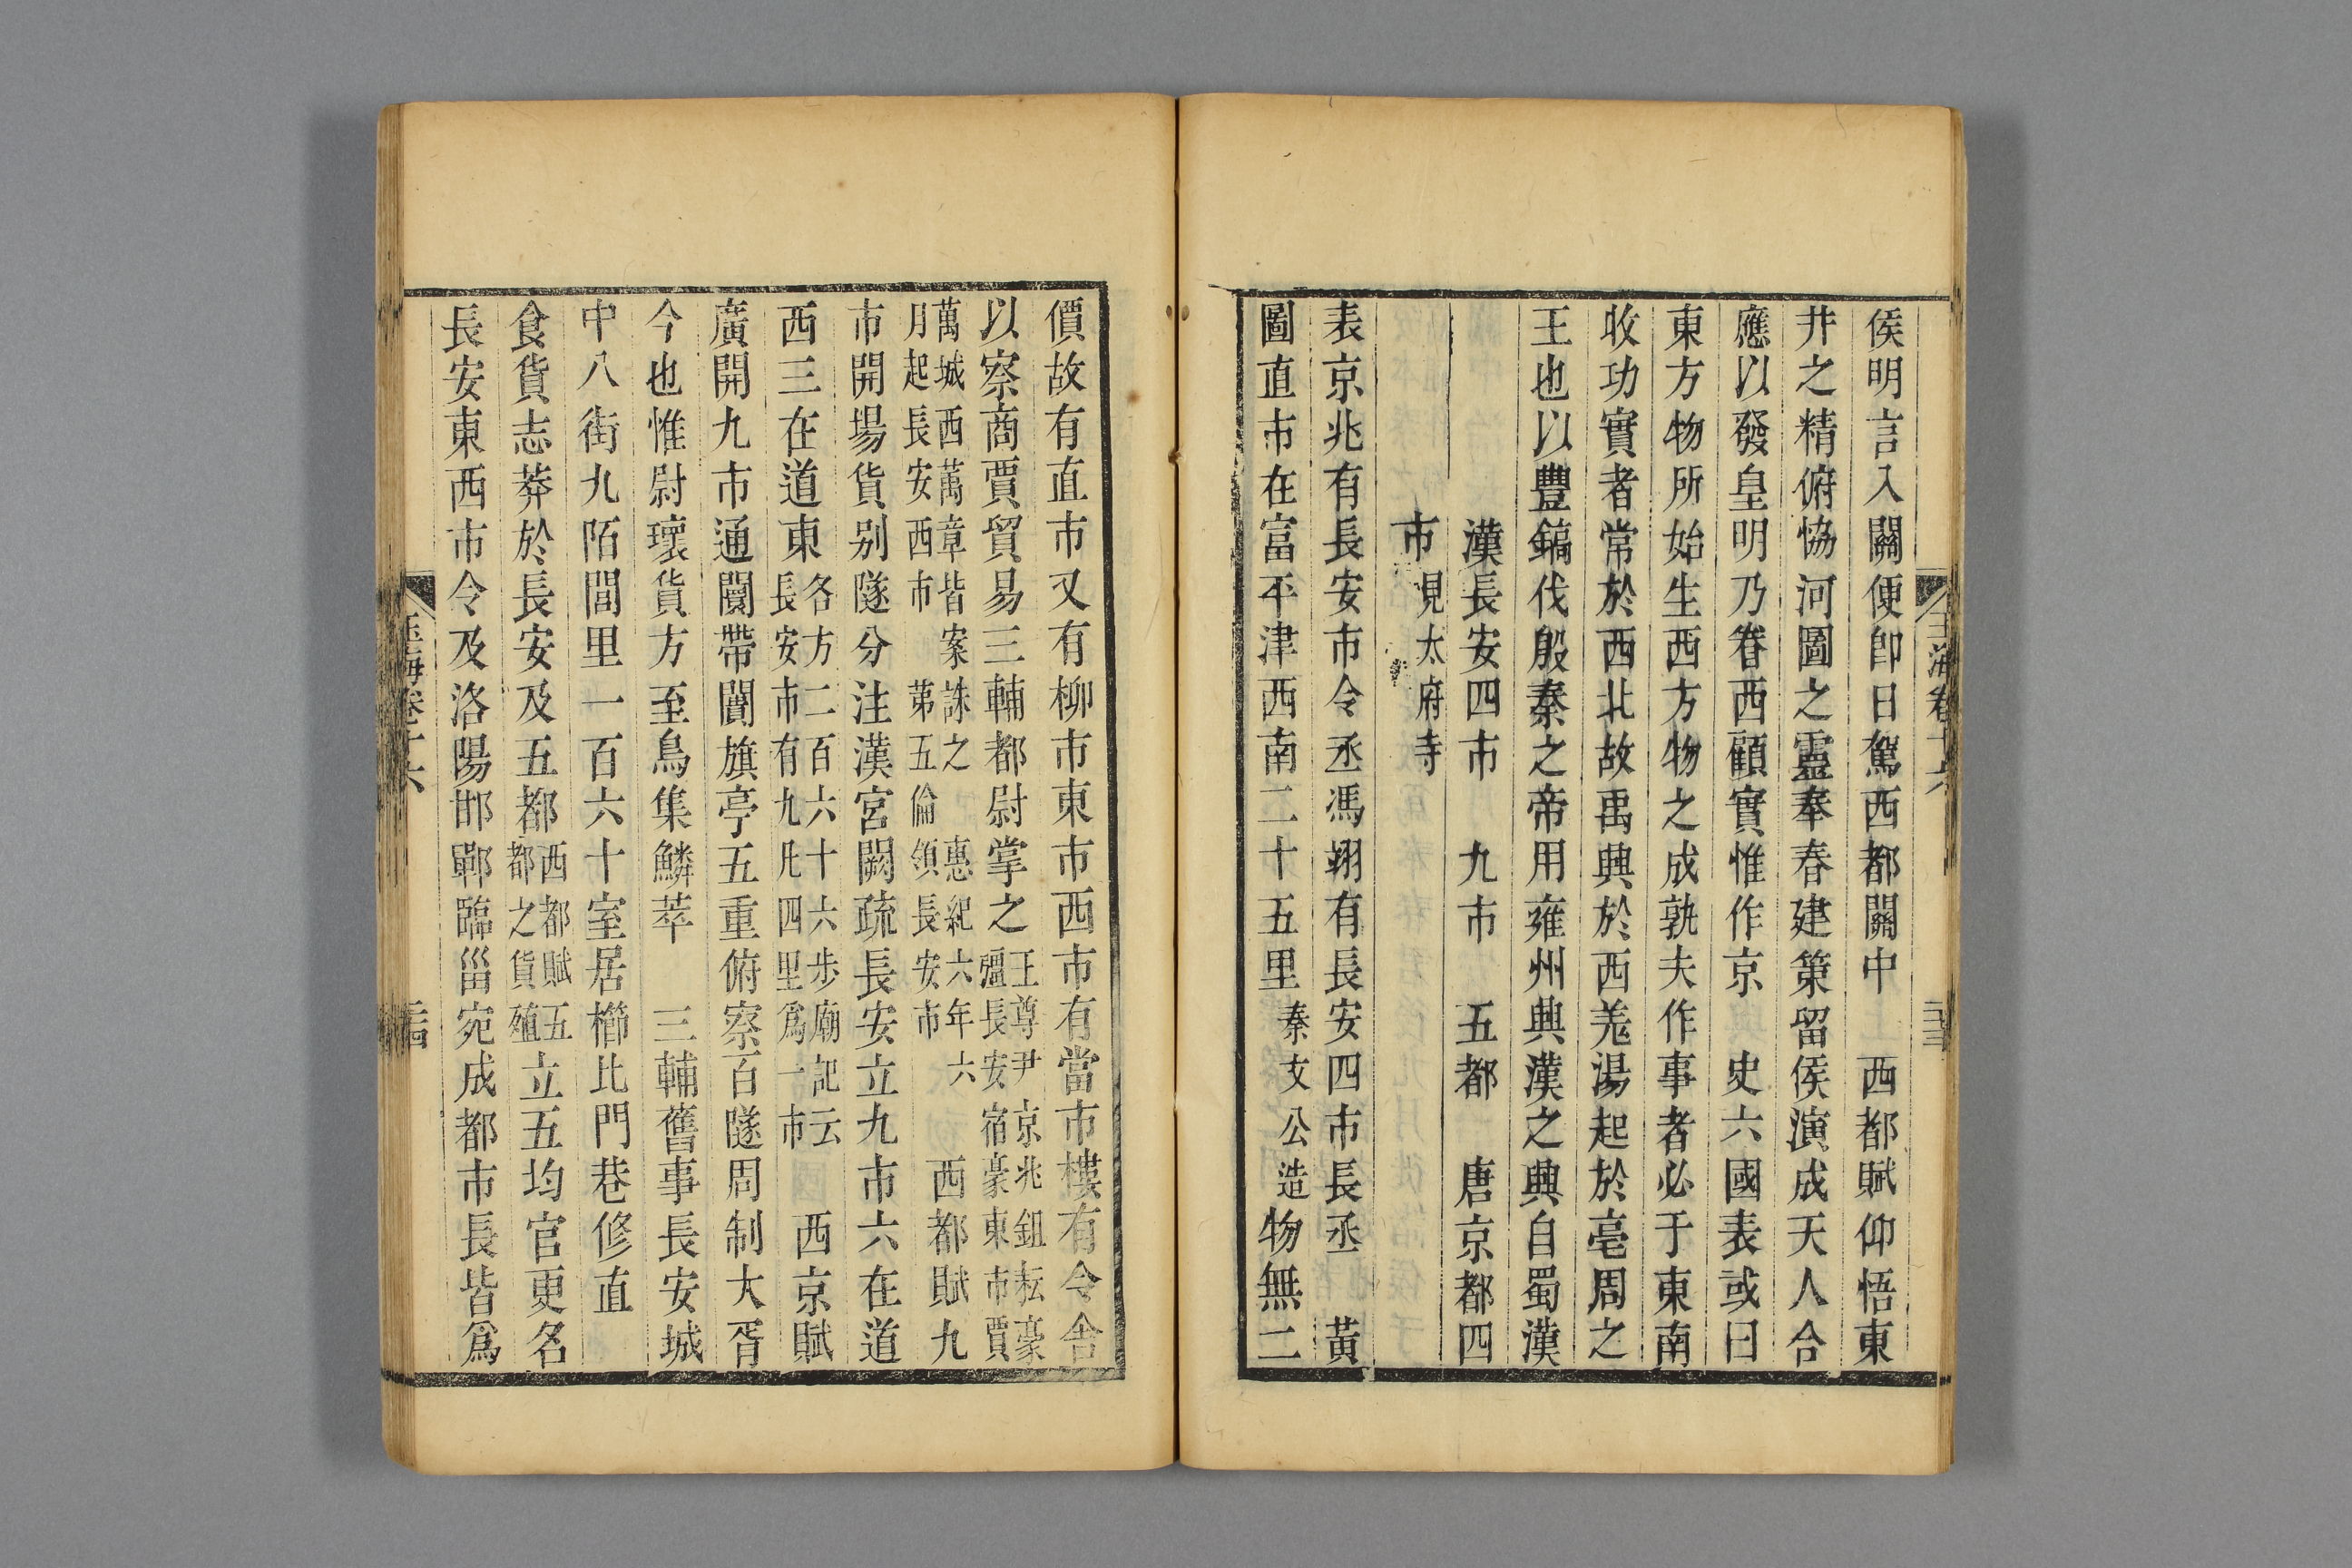 侯明言入關便卽日駕西都關中　西都賦仰悟東
井之精俯協河圖之靈奉春建策留侯演成天人合
應以發皇明乃眷西顧實惟作京　史六國表或曰
東方物所始生西方物之成孰夫作事者必于東南
收功實者常於西北故禹興於西羌湯起於亳周之
王也以豐鎬伐殷秦之帝用雍州興漢之興自蜀漢
漢長安四市　九市　五都　唐京都四
市見太府寺
表京兆有長安市令丞馮翊有長安四市長丞　黃
圖直市在富平津西南二十五里秦文公造物無二
價故有直市又有柳市東市西市有當市樓有令舍
以察商賈貿易三輔都尉掌之王尊尹京兆鉏耘豪彊長安宿豪東市賈
萬城西萬章皆案誅之　惠紀六年六月起長安西市　第五倫領長安市　西都賦九
市開場貨别隧分注漢宮闕疏長安立九市六在道
西三在道東各方二百六十六步廟記云長安市有九凡四里爲一市　西京賦
廣開九市通闤帶闠旗亭五重俯察百隧周制大胥
今也惟尉瓌貨方至鳥集鱗萃　三輔舊事長安城
中八街九陌閭里一百六十室居櫛比門巷修直
食貨志莽於長安及五都西都賦五都之貨殖立五均官更名
長安東西市令及洛陽邯鄲臨甾宛成都市長皆爲
玉海卷十六